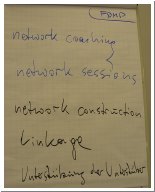 FDMP
network coaching
network sessions
network construction
Linkage
Unterstützung der